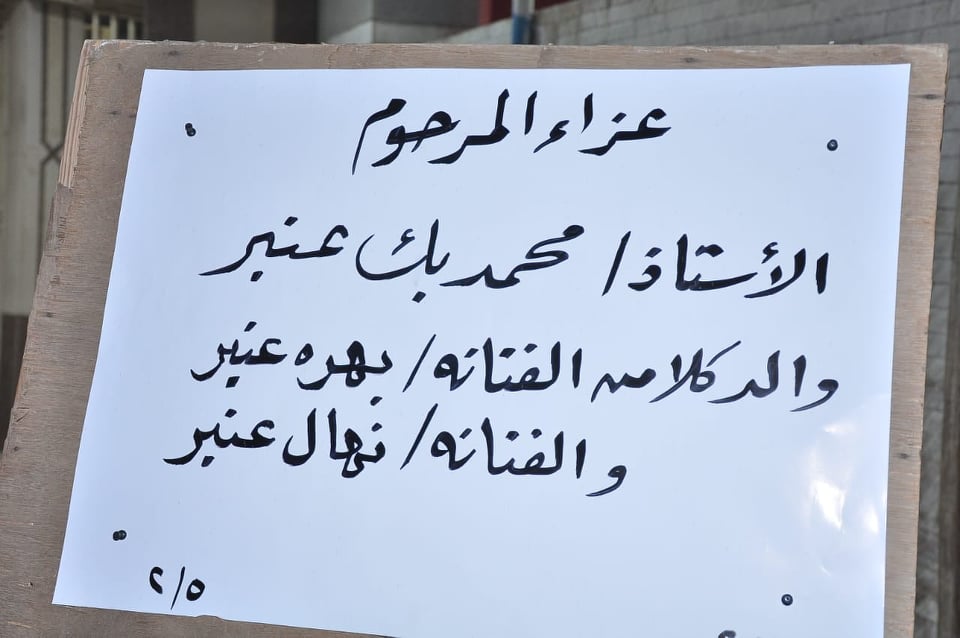 عزاء المرحوم
الأستاذ/ محمد بك عنبر
والد كلا من الفنانه/ بهره عنبر
والفنانه/ نهال عنبر
٢/٥